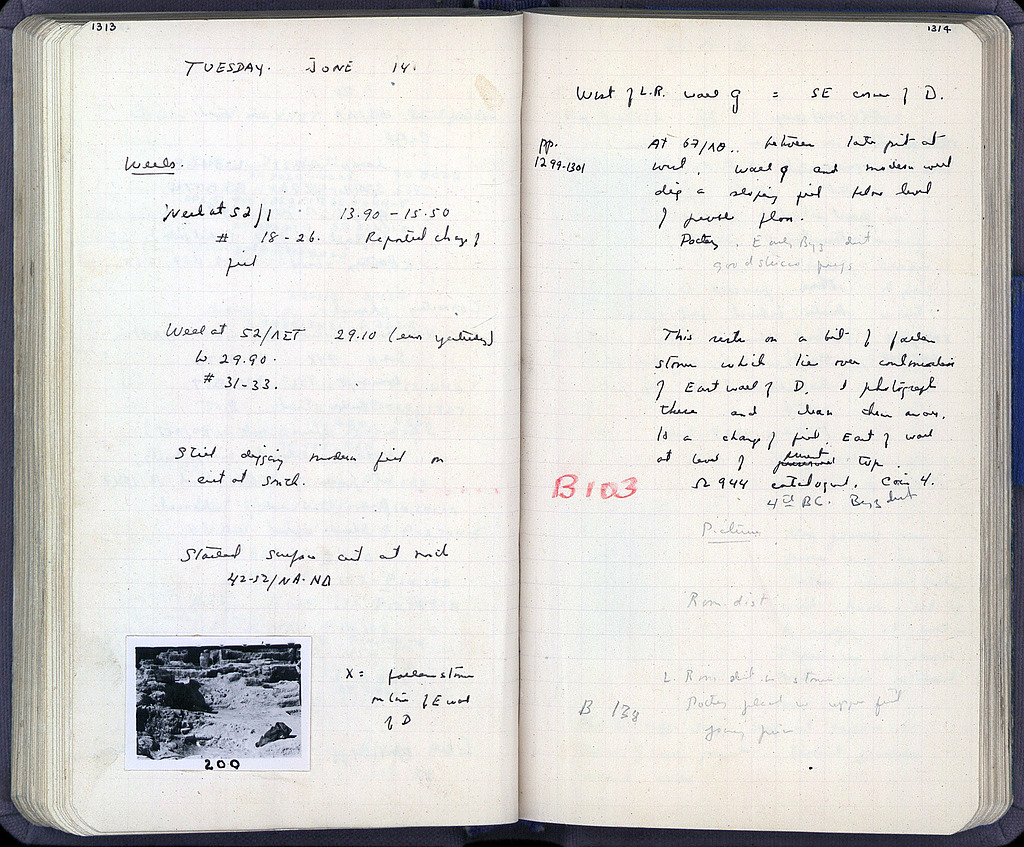 1313
TUESDAY. JUNE 14.
Wells.
Well at 52/1 13.90 - 15.50
# 18-26. Reported change of
fill
Well at 52/ΛΕΤ 29.10 (even yesterday)
to 29.90.
# 31-33.
Still digging modern fill on
cut at South.
Started surface cut at north
42-52/ΝΑ-ΝΔ
X = fallen stone
on line of E wall
of D
200
1314
West of L.R. wall 9 = SE corner of D.
pp.
1299-1301
At 67/ΛΘ.. between late pit at
west, wall 9 and modern wall
dig a sloping fill below level
of floor.
Pottery. Early Byz dist
good sliced
This rests on a bit of fallen
stones which lie over continuation
of East wall of D. I photograph
these and clean them away.
Is a change of fill, East of wall
at level of present top.
B 103
Ω 944 catalogued. Coin 4.
4th BC. Byz dist
Picture
Rom. dist
L. Rom dist in stones
B 138
Pottery placed w upper fill